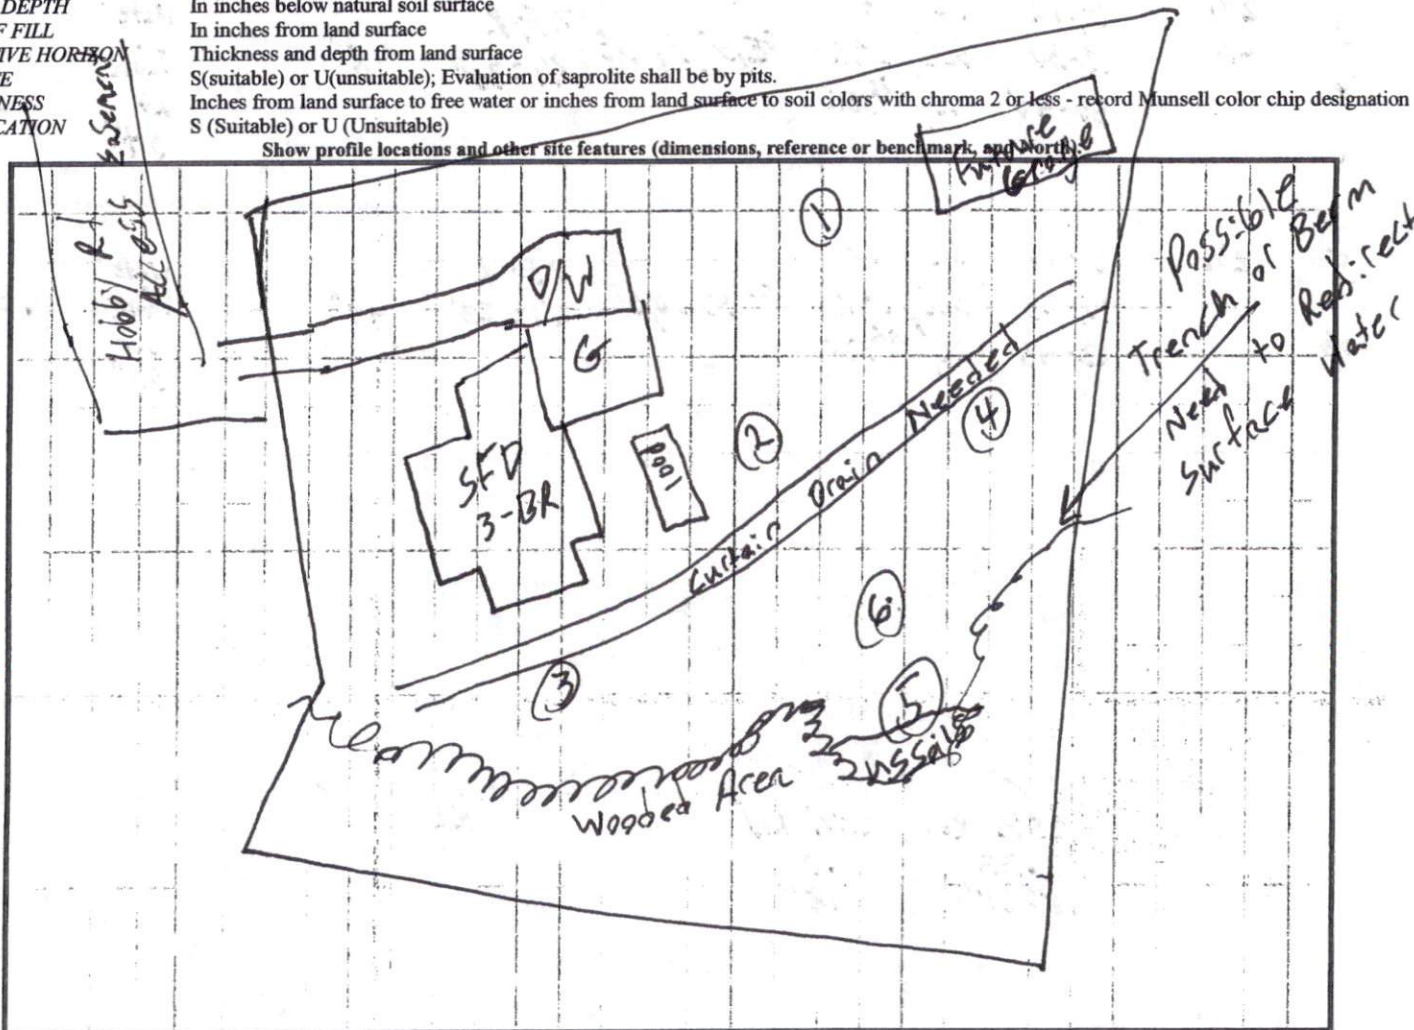 DEPTH In inches below natural soil surface
F FILL In inches from land surface
IVE HORIZON Thickness and depth from land surface
E S(suitable) or U(unsuitable); Evaluation of saprolite shall be by pits.
NESS Inches from land surface to free water or inches from land surface to soil colors with chroma 2 or less - record Munsell color chip designation
CATION S (Suitable) or U (Unsuitable)
Show profile locations and other site features (dimensions, reference or benchmark, and North).
Easement
Hobby Rd
Access
Future
Garage
1
Possible
Trench or Berm
Need to Redirect
Surface Water
D/W
G
2
4
Curtain Drain Needed
SFD
3-BR
Pool
6
3
5
Wooded Area